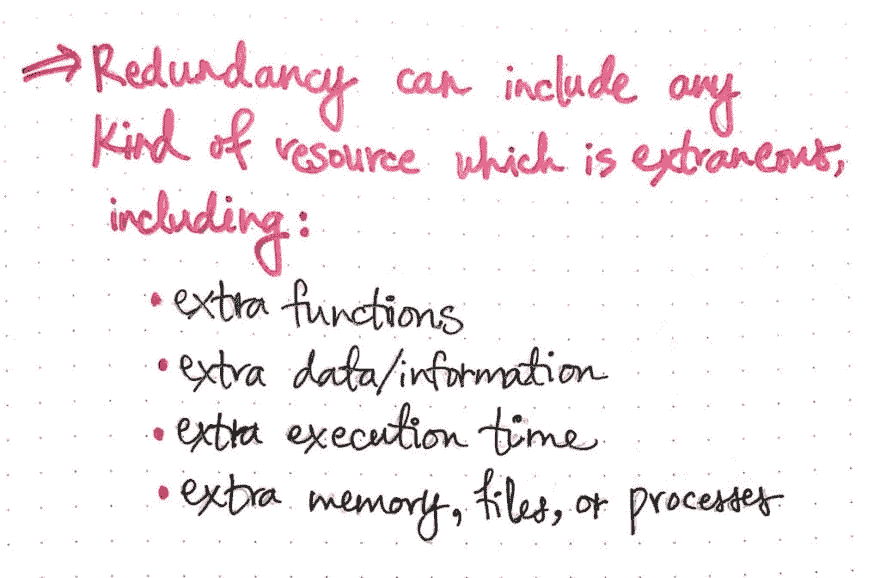 ⇒ Redundancy can include any
kind of resource which is extraneous,
including:
• extra functions
• extra data/information
• extra execution time
• extra memory, files, or processes